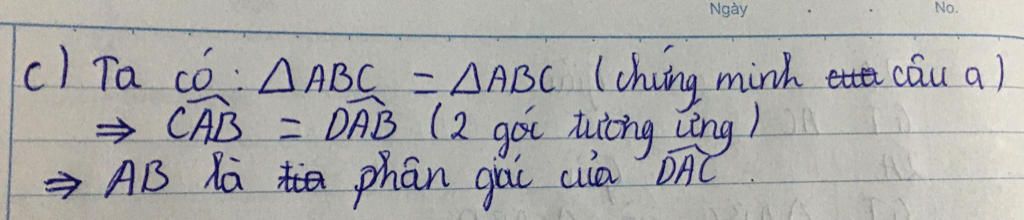 Ngày . . No.
c) Ta có: △ABC = △ABC (chứng minh ~~của~~ câu a)
⇒ \widehat{CAB} = \widehat{DAB} (2 gói tương ứng)
⇒ AB là ~~tia~~ phân giác của \widehat{DAC}.